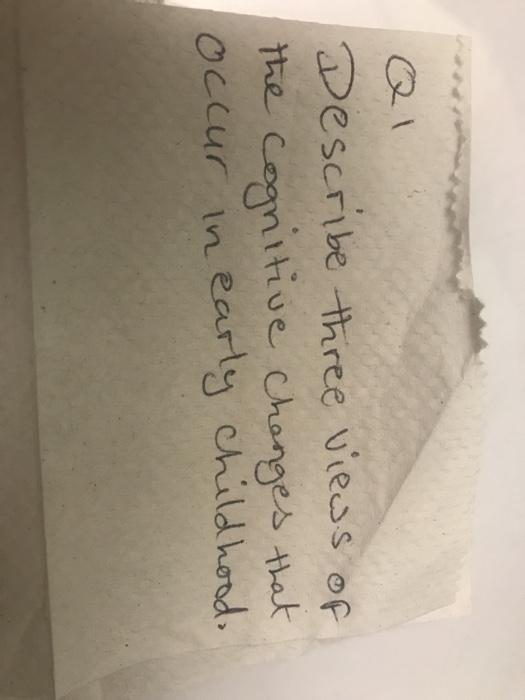 Q1
Describe three views of
the cognitive changes that
occur in early childhood.